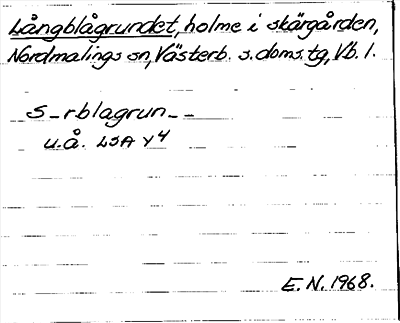 Långblågrundet, holme i skärgården,
Nordmalings sn, Västerb. s. doms. tg, Vb. l.
S-rblagrun--
u.å. LSA Y4
E.N. 1968.